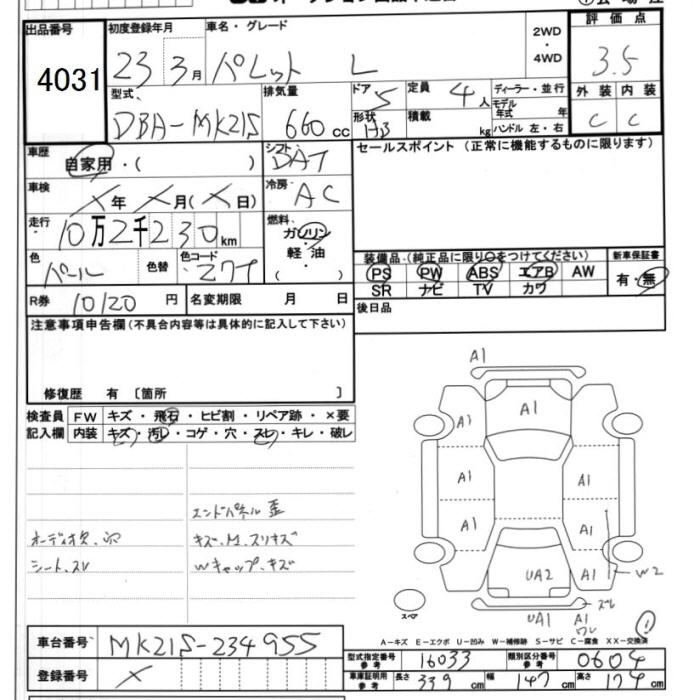 出品番号 初度登録年月 車名・グレード 2WD ・ 4WD 評価点
4031 23 3月 パレット L 3.5
型式 排気量 ドア 定員 ディーラー・並行 外装 内装
DBA-MK21S 660cc 5 4人 モデル年式 年 C C
形状 HB 積載 kg ハンドル 左・右
車歴 自家用・( ) シフト DAT セールスポイント (正常に機能するものに限ります)
車検 ×年 ×月(×日) 冷房 AC
走行 10万2千230km 燃料 ガソリン・軽油 ( )
色 パール 色替 色コード Z7T
装備品・(純正品に限り○をつけてください) 新車保証書
PS PW ABS エアB AW 有・無
SR ナビ TV カワ
R券 10120円 名変期限 月 日 後日品
注意事項申告欄(不具合内容等は具体的に記入して下さい)
修復歴 有 〔箇所 〕
検査員 FW キズ・飛石・ヒビ割・リペア跡・×要
記入欄 内装 キズ・汚レ・コゲ・穴・スレ・キレ・破レ
エンドパネル歪
オーディオ欠.穴 キズ.M.スリキズ
シート.スレ Wキャップ.キズ
A1
A1 A1
A1 A1
A1 A1
UA2 A1 W2
スペア UA1 A1 ズレ
ワレ 1
A-キズ E-エクボ U-凹み W-補修跡 S-サビ C-腐食 XX-交換済
車台番号 MK21S-234955
型式指定番号 参考 16033 類別区分番号 参考 0604
登録番号 × 車庫証明用 参考 長さ 339cm 幅 147cm 高さ 174cm